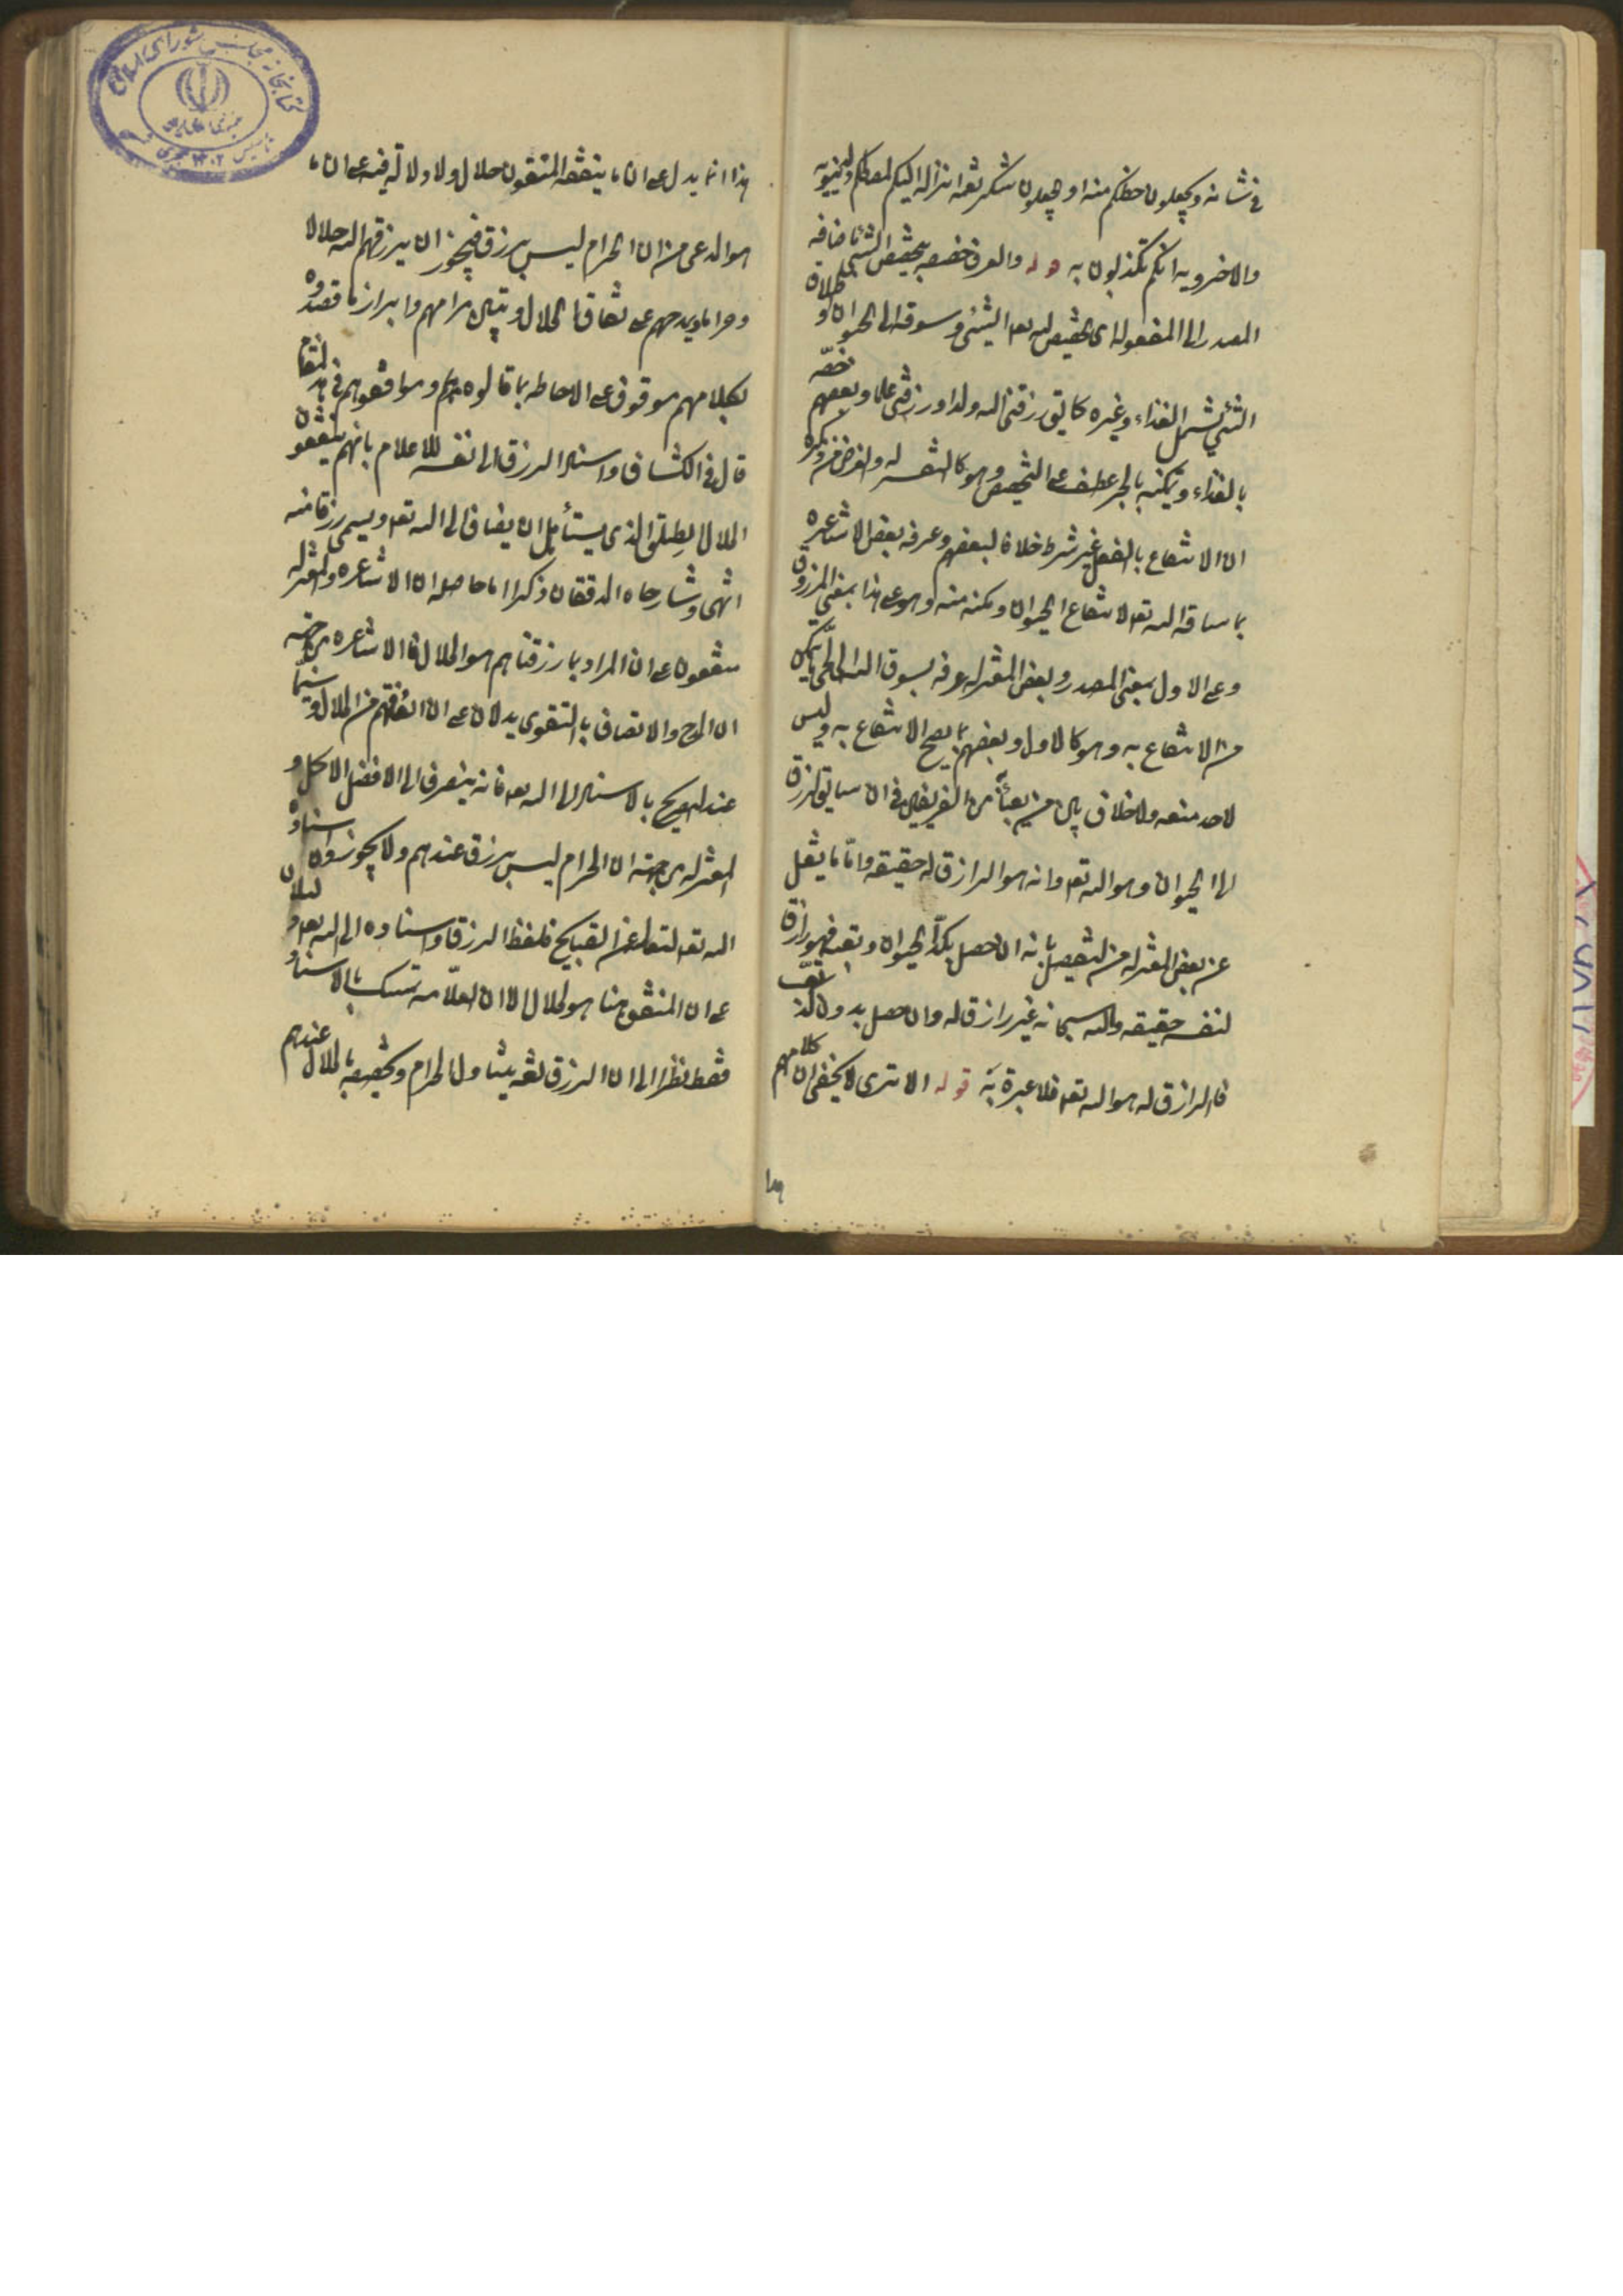 في شانه وتجعلون حظكم منه او تجعلون شكر نعمة انزاله اليكم لمصالحكم الدنيوية
والاخروية انكم تكذبون به قوله والعرف خصصه بتخصيص الشئ باضافه
المصدر الى المفعول اى تخصيص الله تعه الشئ وسوقه الى الحيوان واطلاق
الشئ يشمل الغذاء وغيره كما يق رزقنى الله ولدا ورزقنى علما وبعضهم خصّه
بالغذاء وتمكينه بالجر عطف على التخصيص وهو كالتفسير له والغرض من ذكره
ان الانتفاع بالفعل غير شرط خلافا لبعضهم وعرفه بعض الاشاعره
بما ساقه الله تعه لانتفاع الحيوان ومكنه منه وهو على هذا بمعنى المرزوق
وعلى الاول بمعنى المصدر وبعض المعتزله عرفه بسوق الله الى الحى ما يمكن
من الانتفاع به وهو كالاول وبعضهم بما يصح الانتفاع به وليس
لاحد منعه ولا خلاف بين من يعبأ به من الفريقين في ان سايق الرزق
الى الحيوان وهو الله تعه وانه هو الرازق له حقيقه واما ما ينقل
عن بعض المعتزله من التفصيل بانه ان حصل بكدّ الحيوان وتعبه فهو رازق
لنفسه حقيقه والله سبحانه غير رازق له وان حصل بدون ذلك
فالرازق له هو الله تعه فلا عبرة به قوله الا ترى لا يخفى ان كلامهم
هذا انما يدل على ان ما ينفقه المتقون حلال ولا دلالة فيه على ان ما
هو المدعى من ان الحرام ليس برزق فيجوز ان يرزقهم الله حلالا
وحراما ويمدحهم على انفاق الحلال وتبيين مرامهم وابراز ما قصدوه
بكلامهم موقوف على الاحاطه بما قالوه هم وموافقوهم في هذا المقام
قال في الكشاف واسناد الرزق الى نفسه للاعلام بانهم ينفقون
الحلال المطلق الذى يستأهل ان يضاف الى الله تعه ويسمى رزقا منه
انتهى وشارحاه المدققان ذكرا ما حاصله ان الاشاعره والمعتزله
متفقون على ان المراد بما رزقناهم هو الحلال فالاشاعره من جهه
ان المدح والاتصاف بالتقوى يدلان على ان انفاقهم من الحلال وسيما
عند التصريح بالاسناد الى الله تعه فانه ينصرف الى الافضل الاكمل و
المعتزله من جهته ان الحرام ليس برزق عندهم ولا يجوزون اسناده
الى الله تعه لتعاليه عن القبايح فلفظ الرزق واسناده الى الله تعه يدلان
على ان المنفق هنا هو الحلال الا ان العلّامه تمسك بالاسناد
فقط نظرا الى ان الرزق لغة يتناول الحرام وتخصيصه بالحلال عندهم